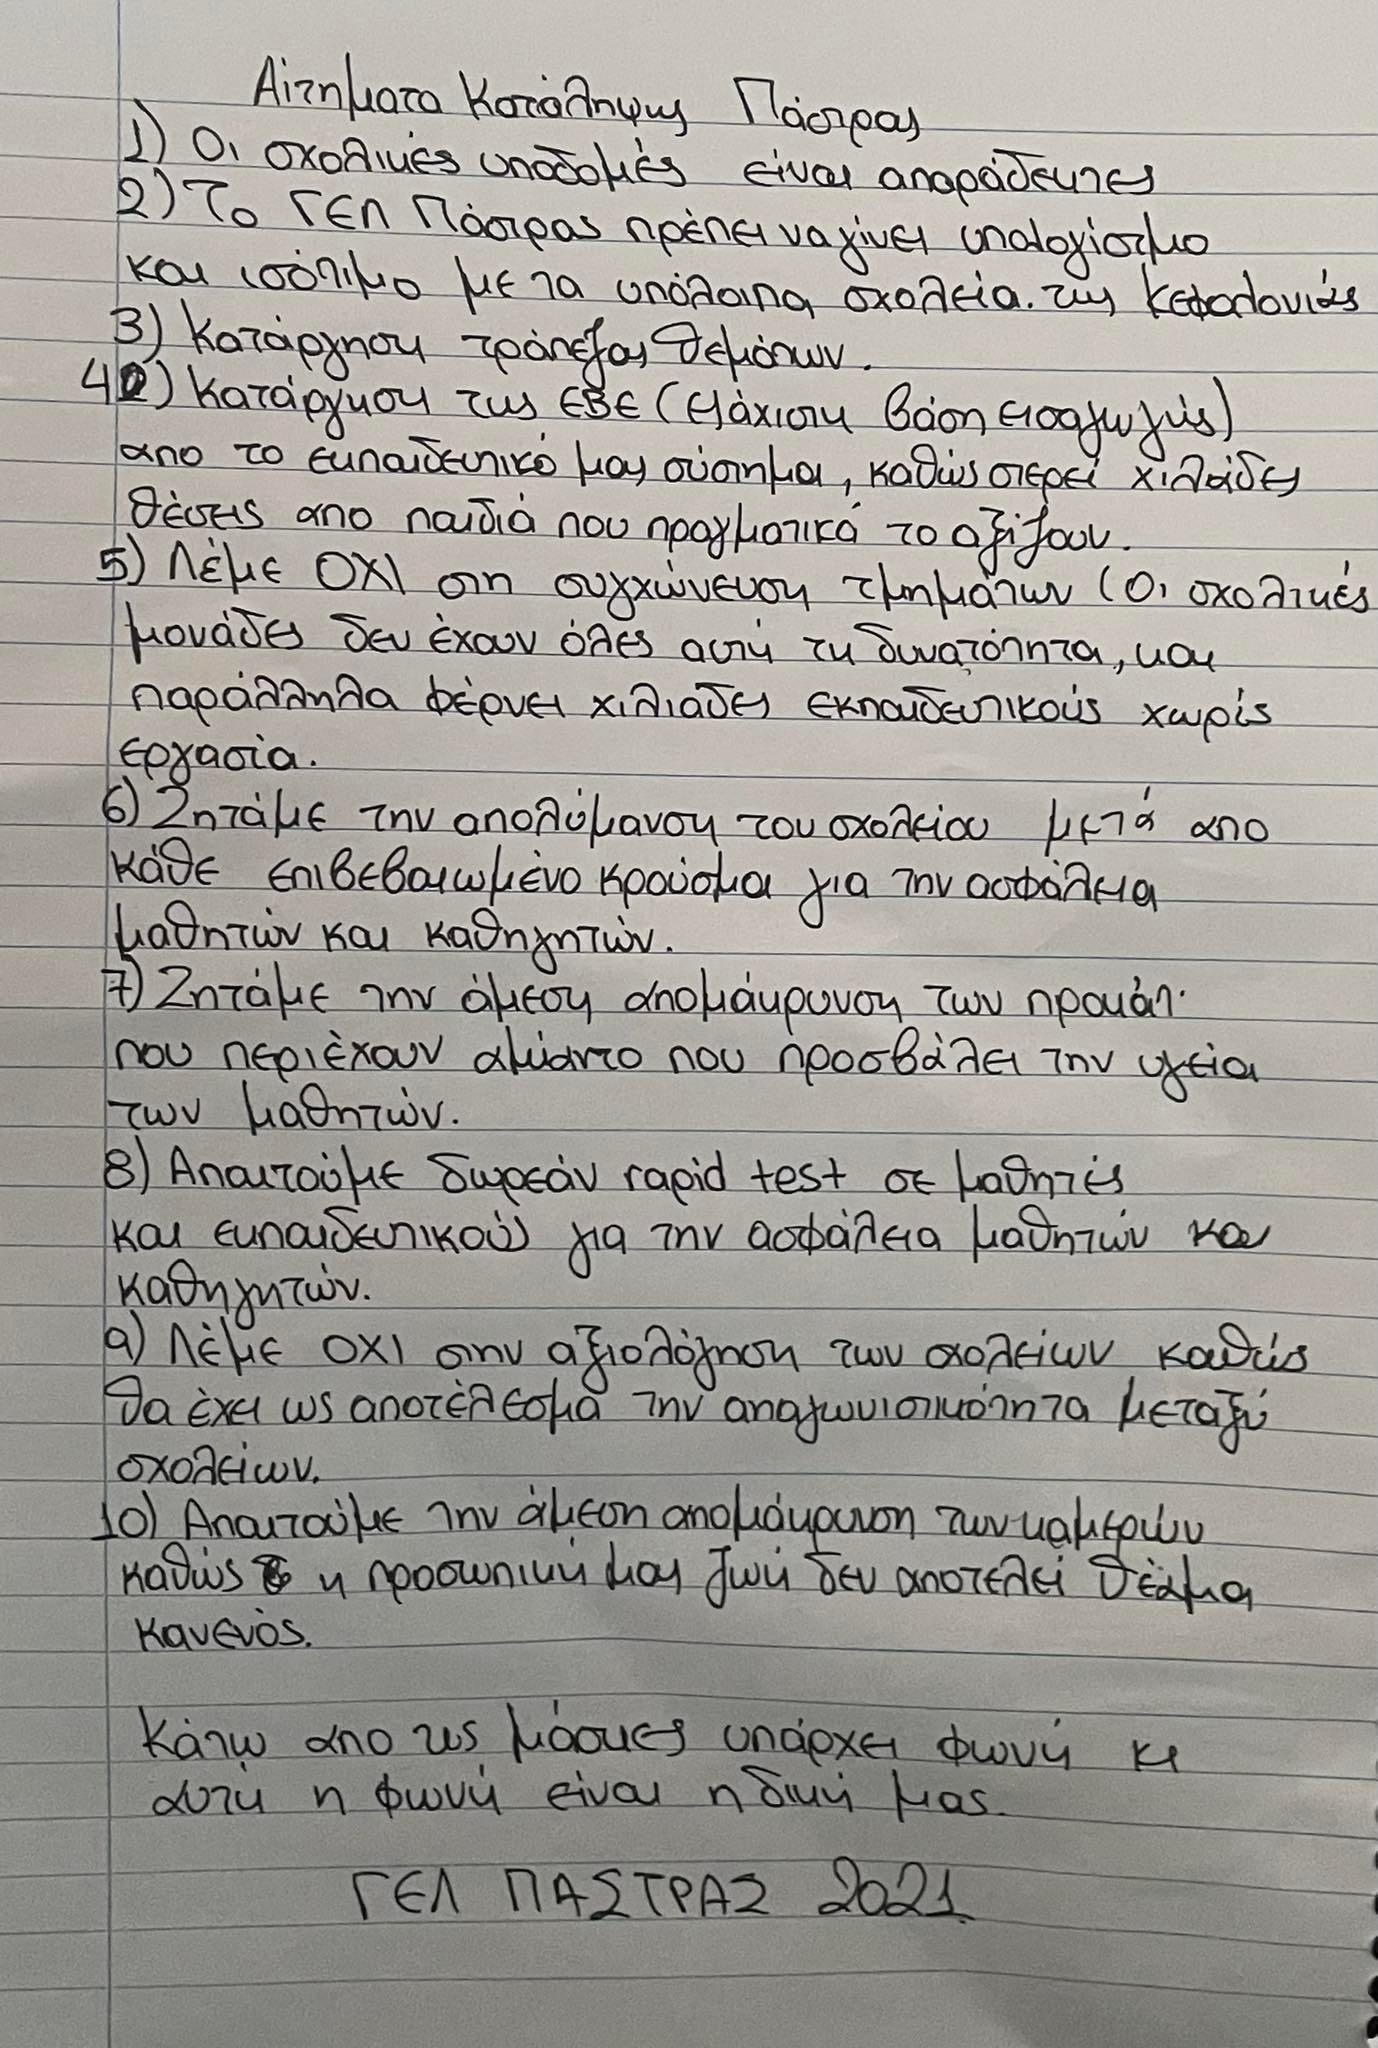 Αίτηματα Κατάληψης Πάστρας
1) Οι σχολικές υποδομές είναι απαράδεκτες
2) Το ΓΕΛ Πάστρας πρέπει να γίνει υπολογίσιμο
και ισότιμο με τα υπόλοιπα σχολεία. της Κεφαλονιάς
3) Κατάργηση τράπεζας θεμάτων.
4) Κατάργηση της ΕΒΕ (ελάχιστη βάση εισαγωγής)
απο το εκπαιδευτικό μας σύστημα, καθώς στερεί χιλιάδες
θέσεις απο παιδιά που πραγματικά το αξίζουν.
5) Λέμε ΟΧΙ στη συγχώνευση τμημάτων (Οι σχολικές
μονάδες δεν έχουν όλες αυτή τη δυνατότητα, και
παράλληλα φέρνει χιλιάδες εκπαιδευτικούς χωρίς
εργασία.
6) Ζητάμε την απολύμανση του σχολείου μετά απο
κάθε επιβεβαιωμένο κρούσμα για την ασφάλεια
μαθητών και καθηγητών.
7) Ζητάμε την άμεση απομάκρυνση των προκάτ
που περιέχουν αμίαντο που προσβάλει την υγεία
των μαθητών.
8) Απαιτούμε δωρεάν rapid test σε μαθητές
και εκπαιδευτικούς για την ασφάλεια μαθητών και
καθηγητών.
9) Λέμε ΟΧΙ στην αξιολόγηση των σχολείων καθώς
θα έχει ως αποτέλεσμα την αναγωνιστικότητα μεταξύ
σχολείων.
10) Απαιτούμε την άμεση απομάκρυνση των καμερών
καθώς η προσωπική μας ζωή δεν αποτελεί θέαμα
κανενός.
Κάτω απο τις μάσκες υπάρχει φωνή κι
αυτή η φωνή είναι η δική μας.
ΓΕΛ ΠΑΣΤΡΑΣ 2021